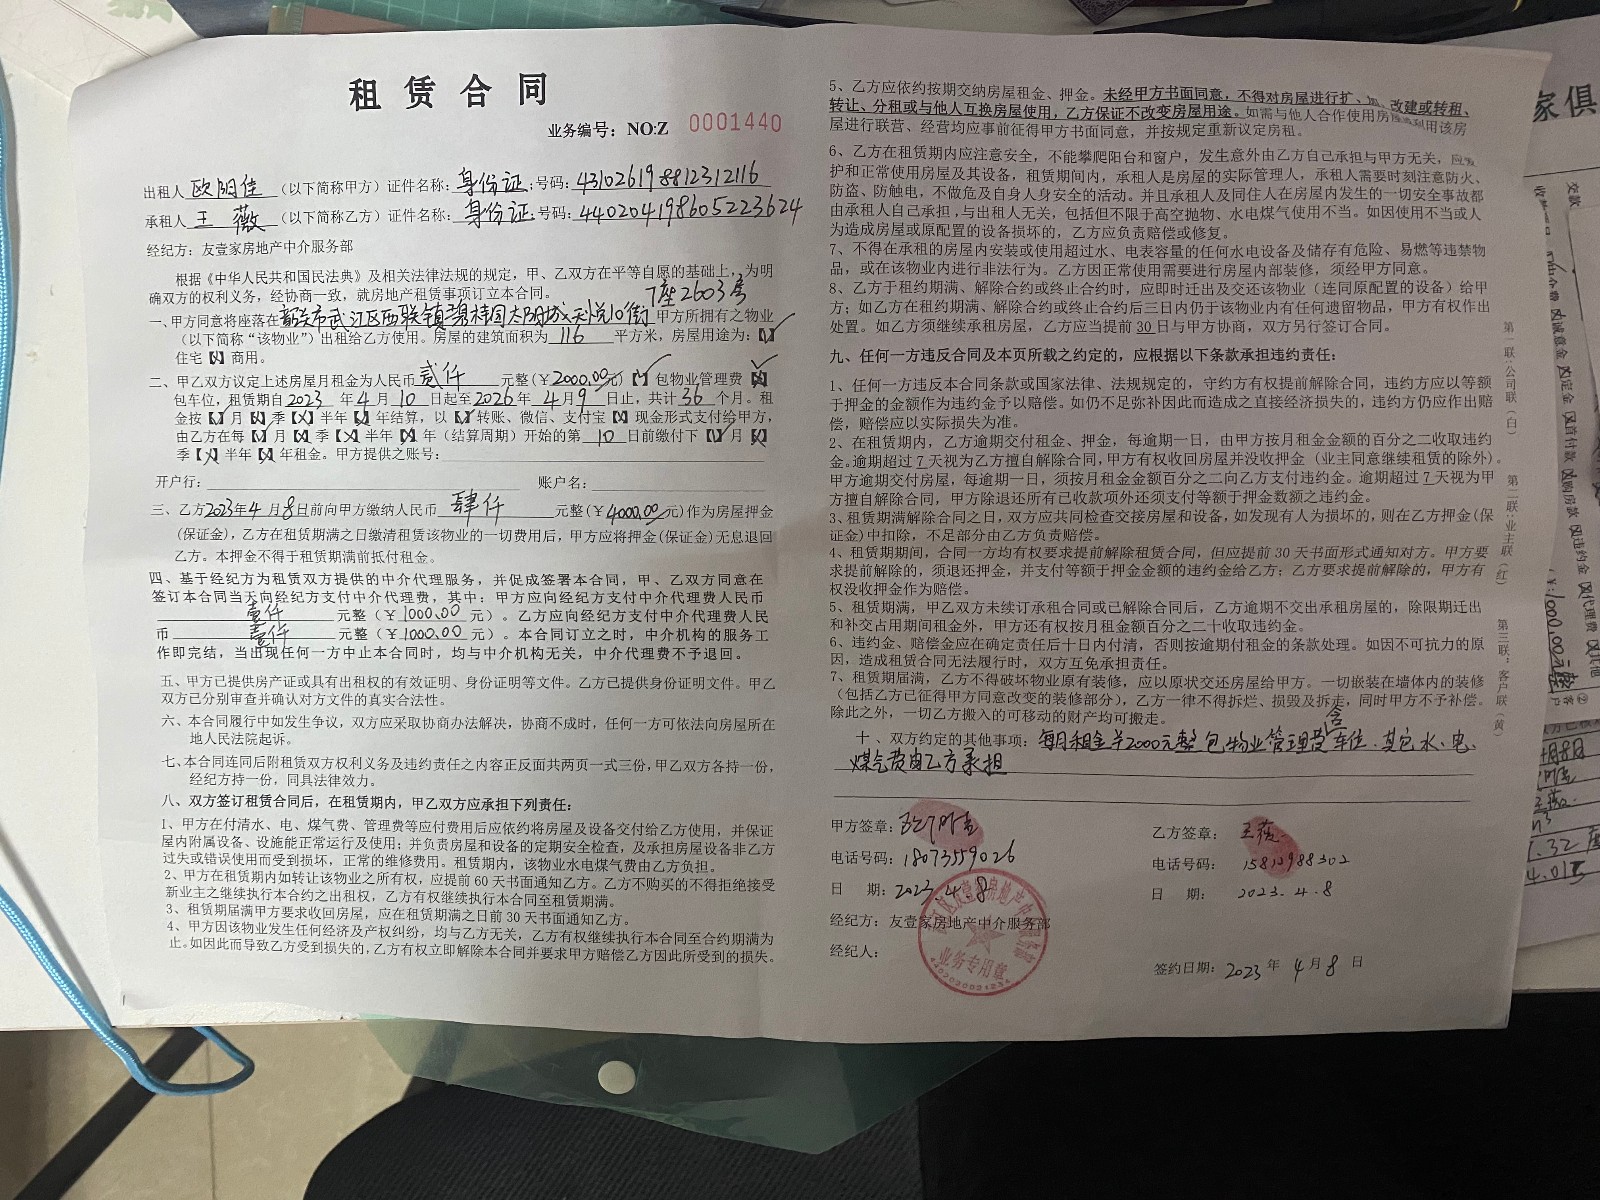 租赁合同
业务编号：NO:Z 0001440
出租人 欧阳佳 （以下简称甲方）证件名称：身份证；号码：431026198812312116
承租人 王薇 （以下简称乙方）证件名称：身份证；号码：440204198605223624
经纪方：友壹家房地产中介服务部
根据《中华人民共和国民法典》及相关法律法规的规定，甲、乙双方在平等自愿的基础上，为明
确双方的权利义务，经协商一致，就房地产租赁事项订立本合同。
7座2603房
一、甲方同意将座落在韶关市武江区西联镇碧桂园太阳城天悦10街 甲方所拥有之物业
（以下简称“该物业”）出租给乙方使用。房屋的建筑面积为 116 平方米，房屋用途为：【✓】
住宅【×】商用。
二、甲乙双方议定上述房屋月租金为人民币 贰仟 元整（￥2000.00元）【✓】包物业管理费【✓】
包车位，租赁期自2023 年 4 月 10 日起至2026 年 4 月 9 日止，共计 36 个月。租
金按【✓】月【×】季【×】半年【×】年结算，以【✓】转账、微信、支付宝【×】现金形式支付给甲方，
由乙方在每【✓】月【×】季【×】半年【×】年（结算周期）开始的第 10 日前缴付下【✓】月【×】
季【×】半年【×】年租金。甲方提供之账号：
开户行： 账户名：
三、乙方2023年4 月8日前向甲方缴纳人民币 肆仟 元整（￥4000.00元）作为房屋押金
(保证金)，乙方在租赁期满之日缴清租赁该物业的一切费用后，甲方应将押金(保证金)无息退回
乙方。本押金不得于租赁期满前抵付租金。
四、基于经纪方为租赁双方提供的中介代理服务，并促成签署本合同，甲、乙双方同意在
签订本合同当天向经纪方支付中介代理费，其中：甲方应向经纪方支付中介代理费人民币
壹仟 元整（￥1000.00 元）。乙方应向经纪方支付中介代理费人民
币 壹仟 元整（￥1000.00 元）。本合同订立之时，中介机构的服务工
作即完结，当出现任何一方中止本合同时，均与中介机构无关，中介代理费不予退回。
五、甲方已提供房产证或具有出租权的有效证明、身份证明等文件。乙方已提供身份证明文件。甲乙
双方已分别审查并确认对方文件的真实合法性。
六、本合同履行中如发生争议，双方应采取协商办法解决，协商不成时，任何一方可依法向房屋所在
地人民法院起诉。
七、本合同连同后附租赁双方权利义务及违约责任之内容正反面共两页一式三份，甲乙双方各持一份，
经纪方持一份，同具法律效力。
八、双方签订租赁合同后，在租赁期内，甲乙双方应承担下列责任：
1、甲方在付清水、电、煤气费、管理费等应付费用后应依约将房屋及设备交付给乙方使用，并保证
屋内附属设备、设施能正常运行及使用；并负责房屋和设备的定期安全检查，及承担房屋设备非乙方
过失或错误使用而受到损坏，正常的维修费用。租赁期内，该物业水电煤气费由乙方负担。
2、甲方在租赁期内如转让该物业之所有权，应提前60天书面通知乙方。乙方不购买的不得拒绝接受
新业主之继续执行本合约之出租权，乙方有权继续执行本合同至租赁期满。
3、租赁期届满甲方要求收回房屋，应在租赁期满之日前30天书面通知乙方。
4、甲方因该物业发生任何经济及产权纠纷，均与乙方无关，乙方有权继续执行本合同至合约期满为
止。如因此而导致乙方受到损失的，乙方有权立即解除本合同并要求甲方赔偿乙方因此所受到的损失。
5、乙方应依约按期交纳房屋租金、押金。未经甲方书面同意，不得对房屋进行扩、加、改建或转租、
转让、分租或与他人互换房屋使用，乙方保证不改变房屋用途。如需与他人合作使用房屋或利用该房
屋进行联营、经营均应事前征得甲方书面同意，并按规定重新议定房租。
6、乙方在租赁期内应注意安全，不能攀爬阳台和窗户，发生意外由乙方自己承担与甲方无关，应爱
护和正常使用房屋及其设备，租赁期间内，承租人是房屋的实际管理人，承租人需要时刻注意防火、
防盗、防触电，不做危及自身人身安全的活动。并且承租人及同住人在房屋内发生的一切安全事故都
由承租人自己承担，与出租人无关，包括但不限于高空抛物、水电煤气使用不当。如因使用不当或人
为造成房屋或原配置的设备损坏的，乙方应负责赔偿或修复。
7、不得在承租的房屋内安装或使用超过水、电表容量的任何水电设备及储存有危险、易燃等违禁物
品，或在该物业内进行非法行为。乙方因正常使用需要进行房屋内部装修，须经甲方同意。
8、乙方于租约期满、解除合约或终止合约时，应即时迁出及交还该物业（连同原配置的设备）给甲
方；如乙方在租约期满、解除合约或终止合约后三日内仍于该物业内有任何遗留物品，甲方有权作出
处置。如乙方须继续承租房屋，乙方应当提前30日与甲方协商，双方另行签订合同。
九、任何一方违反合同及本页所载之约定的，应根据以下条款承担违约责任：
1、任何一方违反本合同条款或国家法律、法规规定的，守约方有权提前解除合同，违约方应以等额
于押金的金额作为违约金予以赔偿。如仍不足弥补因此而造成之直接经济损失的，违约方仍应作出赔
偿，赔偿应以实际损失为准。
2、在租赁期内，乙方逾期交付租金、押金，每逾期一日，由甲方按月租金金额的百分之二收取违约
金。逾期超过7天视为乙方擅自解除合同，甲方有权收回房屋并没收押金（业主同意继续租赁的除外）。
甲方逾期交付房屋，每逾期一日，须按月租金金额百分之二向乙方支付违约金。逾期超过7天视为甲
方擅自解除合同，甲方除退还所有已收款项外还须支付等额于押金数额之违约金。
3、租赁期满解除合同之日，双方应共同检查交接房屋和设备，如发现有人为损坏的，则在乙方押金(保
证金)中扣除，不足部分由乙方负责赔偿。
4、租赁期期间，合同一方均有权要求提前解除租赁合同，但应提前30天书面形式通知对方。甲方要
求提前解除的，须退还押金，并支付等额于押金金额的违约金给乙方；乙方要求提前解除的，甲方有
权没收押金作为赔偿。
5、租赁期满，甲乙双方未续订承租合同或已解除合同后，乙方逾期不交出承租房屋的，除限期迁出
和补交占用期间租金外，甲方还有权按月租金额百分之二十收取违约金。
6、违约金、赔偿金应在确定责任后十日内付清，否则按逾期付租金的条款处理。如因不可抗力的原
因，造成租赁合同无法履行时，双方互免承担责任。
7、租赁期届满，乙方不得破坏物业原有装修，应以原状交还房屋给甲方。一切嵌装在墙体内的装修
（包括乙方已征得甲方同意改变的装修部分），乙方一律不得拆烂、损毁及拆走，同时甲方不予补偿。
除此之外，一切乙方搬入的可移动的财产均可搬走。
十、双方约定的其他事项：每月租金¥2000元整包物业管理费含车位．其它水、电、
煤气费由乙方承担
甲方签章：欧阳佳
电话号码：18073559026
日 期：2023.4.8
经纪方：友壹家房地产中介服务部
经纪人：
业务专用章
乙方签章：王薇
电话号码：15812988302
日 期：2023.4.8
签约日期：2023 年 4 月 8 日
第一联:公司联（白） 第二联:业主联（红） 第三联:客户联（黄）
家俱